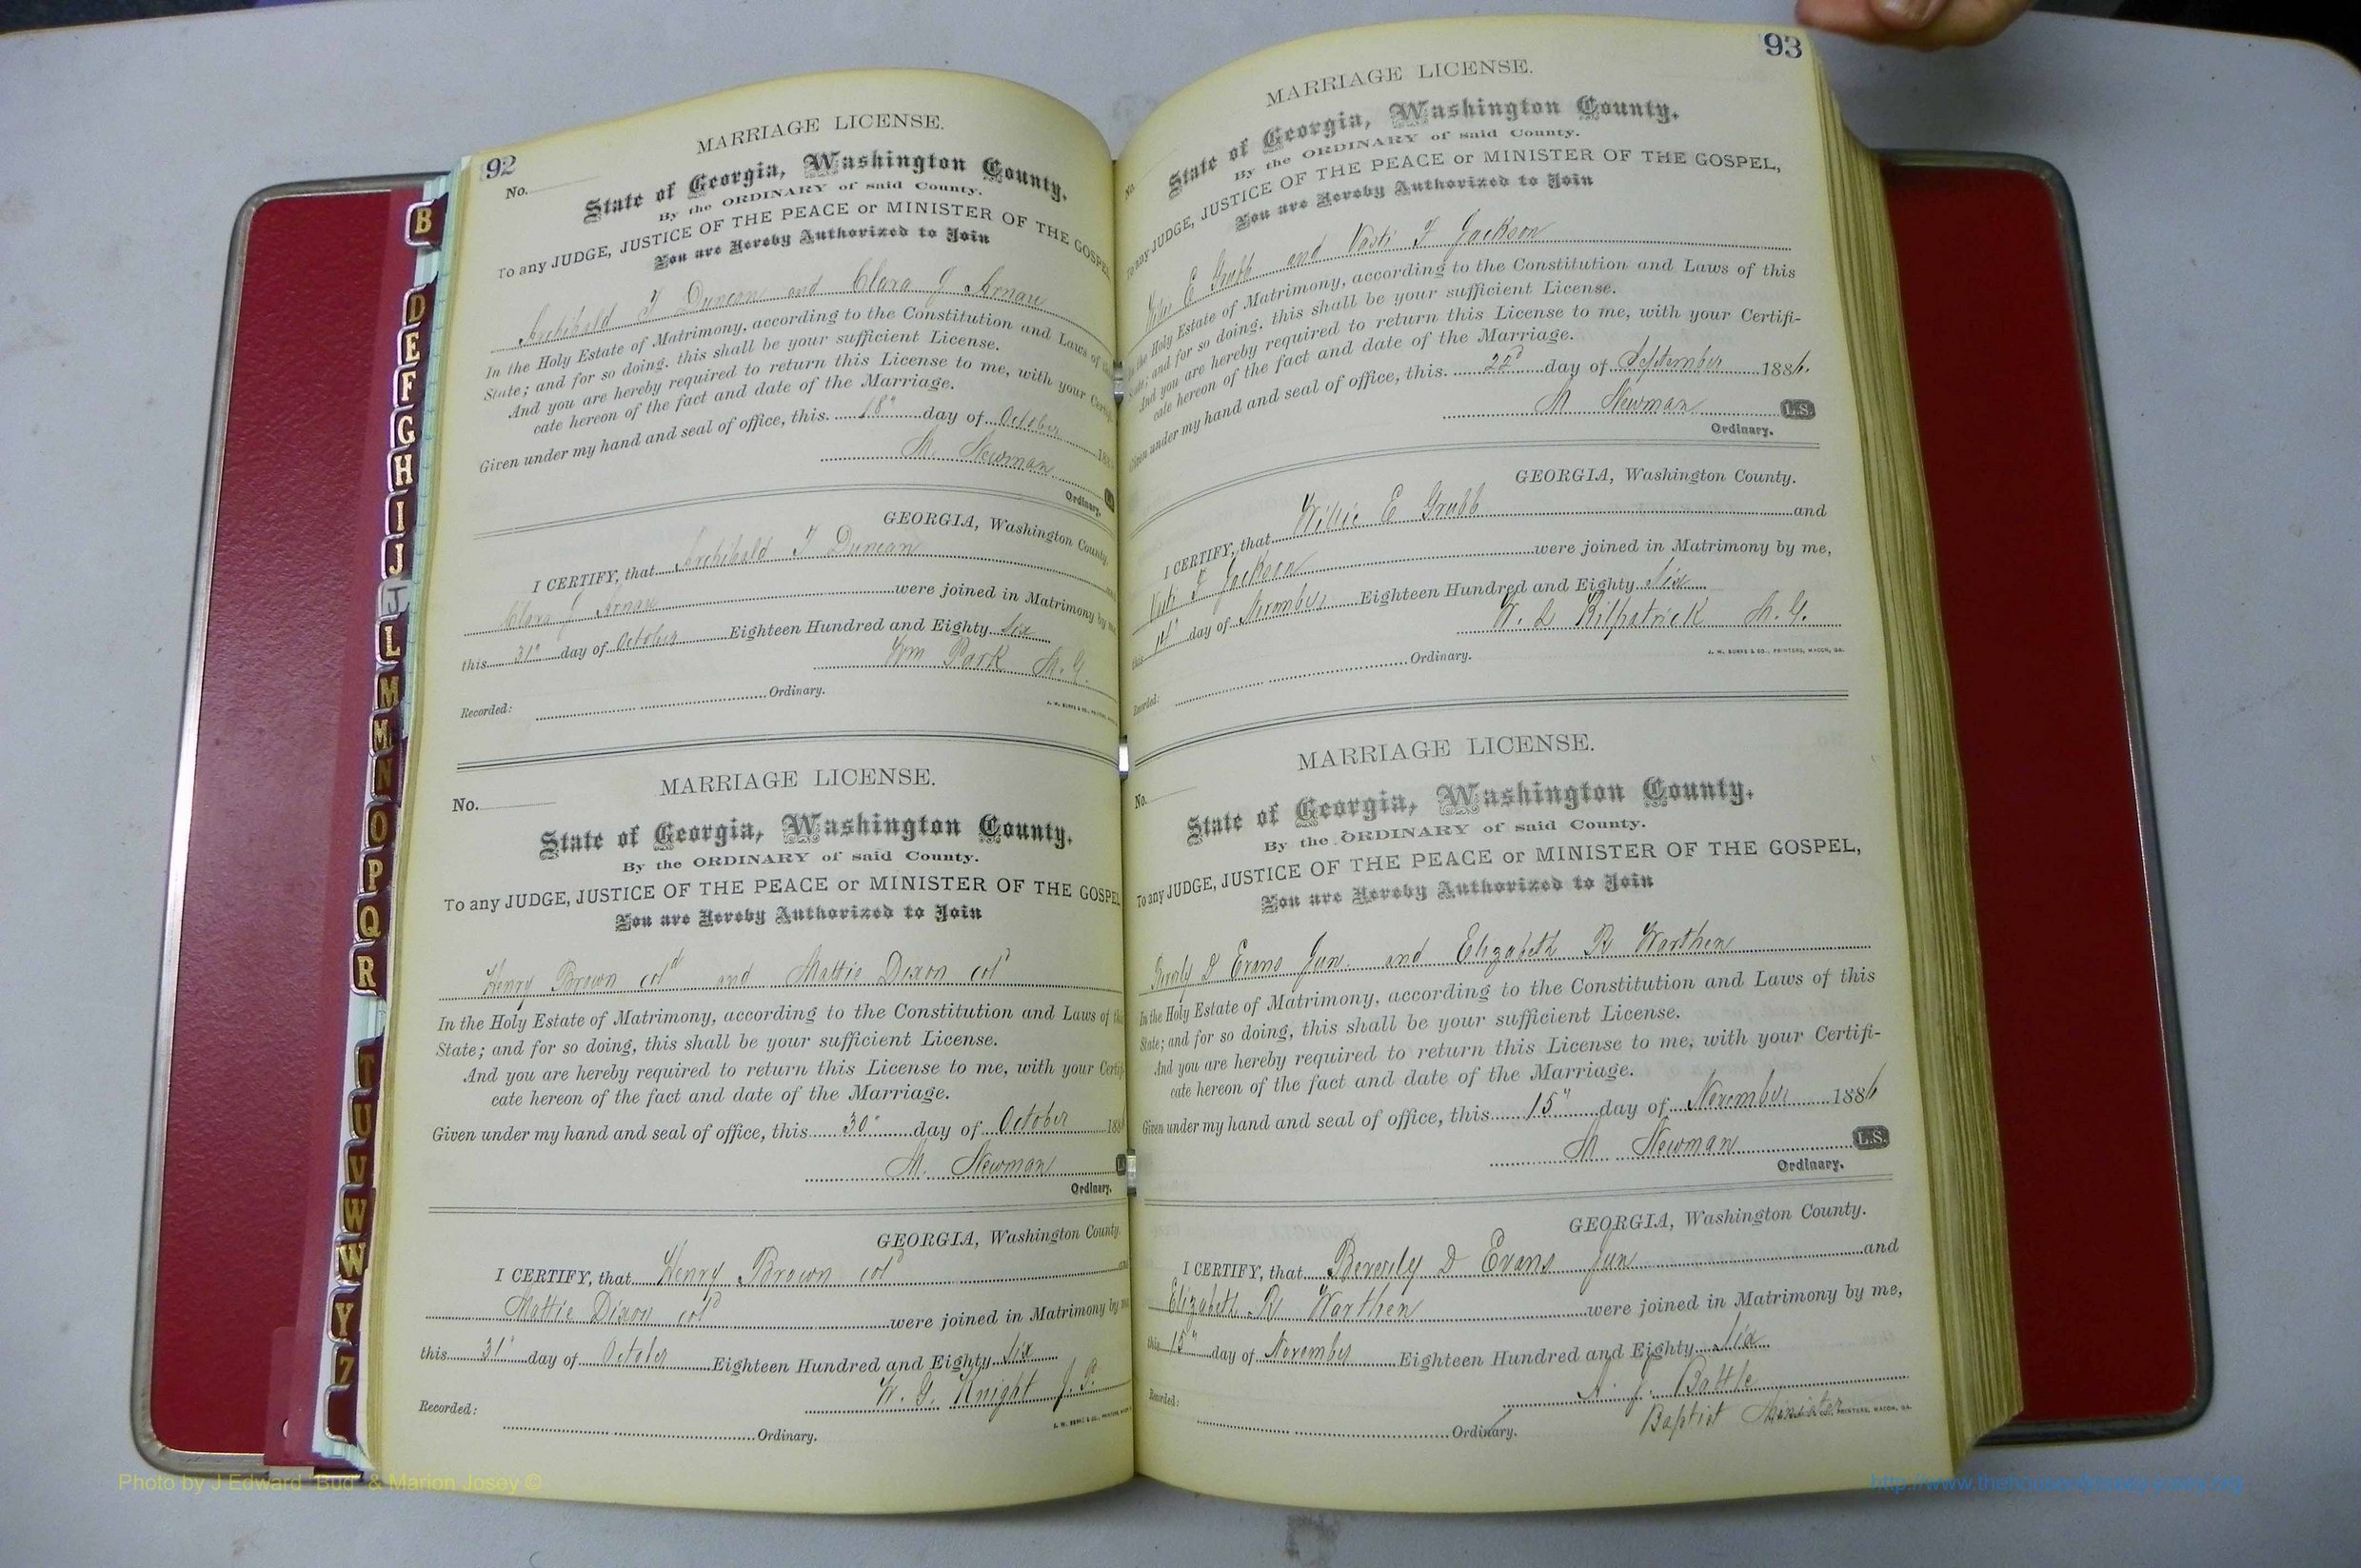 92
MARRIAGE LICENSE.
No.
State of Georgia, Washington County.
By the ORDINARY of said County.
To any JUDGE, JUSTICE OF THE PEACE or MINISTER OF THE GOSPEL
You are Hereby Authorized to Join
Archibald T Duncan and Clara J Arnau
In the Holy Estate of Matrimony, according to the Constitution and Laws of
State; and for so doing, this shall be your sufficient License.
And you are hereby required to return this License to me, with your Certifi
cate hereon of the fact and date of the Marriage.
Given under my hand and seal of office, this 18" day of October 188
M. Newman
Ordinary.
GEORGIA, Washington County.
I CERTIFY, that Archibald T Duncan
Clara J Arnau were joined in Matrimony by
this 31" day of October Eighteen Hundred and Eighty Six
Wm Park M.G.
Recorded: Ordinary.
MARRIAGE LICENSE.
No.
State of Georgia, Washington County.
By the ORDINARY of said County.
To any JUDGE, JUSTICE OF THE PEACE or MINISTER OF THE GOSPEL
You are Hereby Authorized to Join
Henry Brown cold and Mattie Dixon cold
In the Holy Estate of Matrimony, according to the Constitution and Laws of
State; and for so doing, this shall be your sufficient License.
And you are hereby required to return this License to me, with your Certif
cate hereon of the fact and date of the Marriage.
Given under my hand and seal of office, this 30" day of October 188
M. Newman
Ordinary.
GEORGIA, Washington County.
I CERTIFY, that Henry Brown cold
Mattie Dixon cold were joined in Matrimony by
this 31" day of October Eighteen Hundred and Eighty Six
W. G. Knight J.P.
Recorded: Ordinary.
93
MARRIAGE LICENSE.
No.
State of Georgia, Washington County.
By the ORDINARY of said County.
To any JUDGE, JUSTICE OF THE PEACE or MINISTER OF THE GOSPEL,
You are Hereby Authorized to Join
E Grubb and Vasti F Jackson
In the Holy Estate of Matrimony, according to the Constitution and Laws of this
State; and for so doing, this shall be your sufficient License.
And you are hereby required to return this License to me, with your Certifi-
cate hereon of the fact and date of the Marriage.
Given under my hand and seal of office, this 22d day of September 1886.
M Newman L.S.
Ordinary.
GEORGIA, Washington County.
I CERTIFY, that Willie E Grubb and
Vasti F Jackson were joined in Matrimony by me,
this 14" day of November Eighteen Hundred and Eighty Six
W. L Kilpatrick M.G.
Recorded: Ordinary.
J. W. BURKE & CO., PRINTERS, MACON, GA.
MARRIAGE LICENSE.
No.
State of Georgia, Washington County.
By the ORDINARY of said County.
To any JUDGE, JUSTICE OF THE PEACE or MINISTER OF THE GOSPEL,
You are Hereby Authorized to Join
Beverly D Evans Jun. and Elizabeth R Warthen
In the Holy Estate of Matrimony, according to the Constitution and Laws of this
State; and for so doing, this shall be your sufficient License.
And you are hereby required to return this License to me, with your Certifi-
cate hereon of the fact and date of the Marriage.
Given under my hand and seal of office, this 15" day of November 1886
M Newman L.S.
Ordinary.
GEORGIA, Washington County.
I CERTIFY, that Beverly D Evans Jun and
Elizabeth R Warthen were joined in Matrimony by me,
this 15" day of November Eighteen Hundred and Eighty Six
A. J. Battle
Recorded: Ordinary. Baptist Minister
PRINTERS, MACON, GA.
B
D
E
F
G
H
I
J
J
L
M
M
N
O
P
Q
R
T
U
V
W
W
Y
Z
Photo by J Edward "Bud" & Marion Josey ©